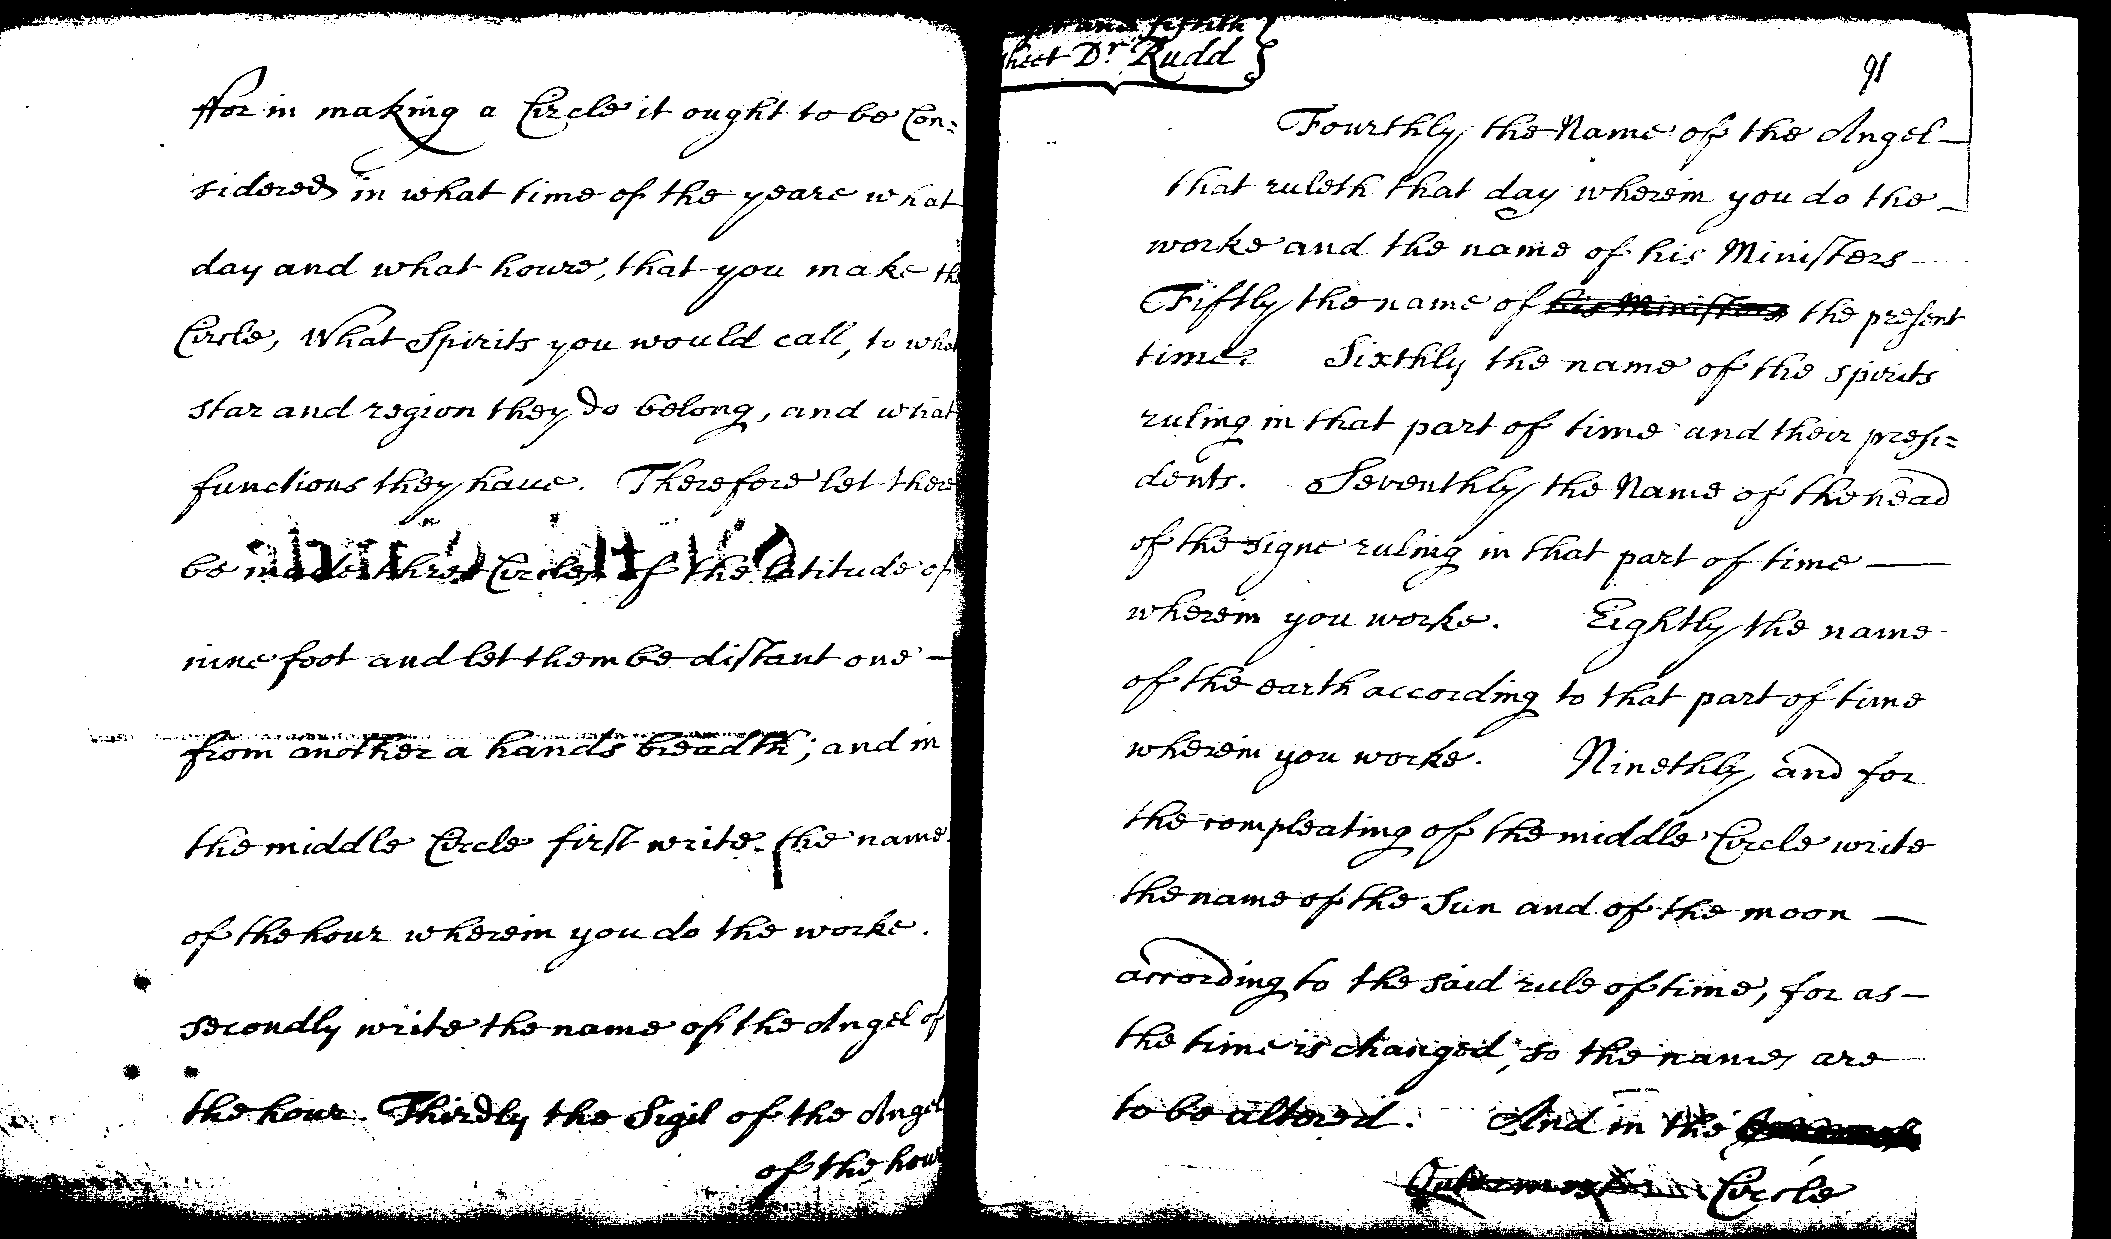 ffor in making a Circle it ought to be Con=
sidered in what time of the yeare what
day and what houre, that you make the
Circle, What Spirits you would call, to what
star and region they do belong, and what
functions they have. Therefore let there
be made three Circles of the latitude of
nine foot and let them be distant one —
from another a hands breadth; and in
the middle Circle first write the name
of the hour wherein you do the worke.
secondly write the name of the Angel of
the hour. Thirdly the Sigil of the Angel
of the hour
and fiftith
sheet Dr Rudd
91
Fourthly the Name of the Angel —
that ruleth that day wherein you do the —
worke and the name of his Ministers
Fiftly the name of his Ministers the present
time. Sixthly the name of the spirits
ruling in that part of time and their presi=
dents. Seventhly the Name of the head
of the signe ruling in that part of time —
wherein you worke. Eightly the name
of the earth according to that part of time
wherein you worke. Ninethly and for
the compleating of the middle Circle write
the name of the Sun and of the moon —
according to the said rule of time, for as —
the time is changed, so the names are
to be altered. And in the
Outermost Circle